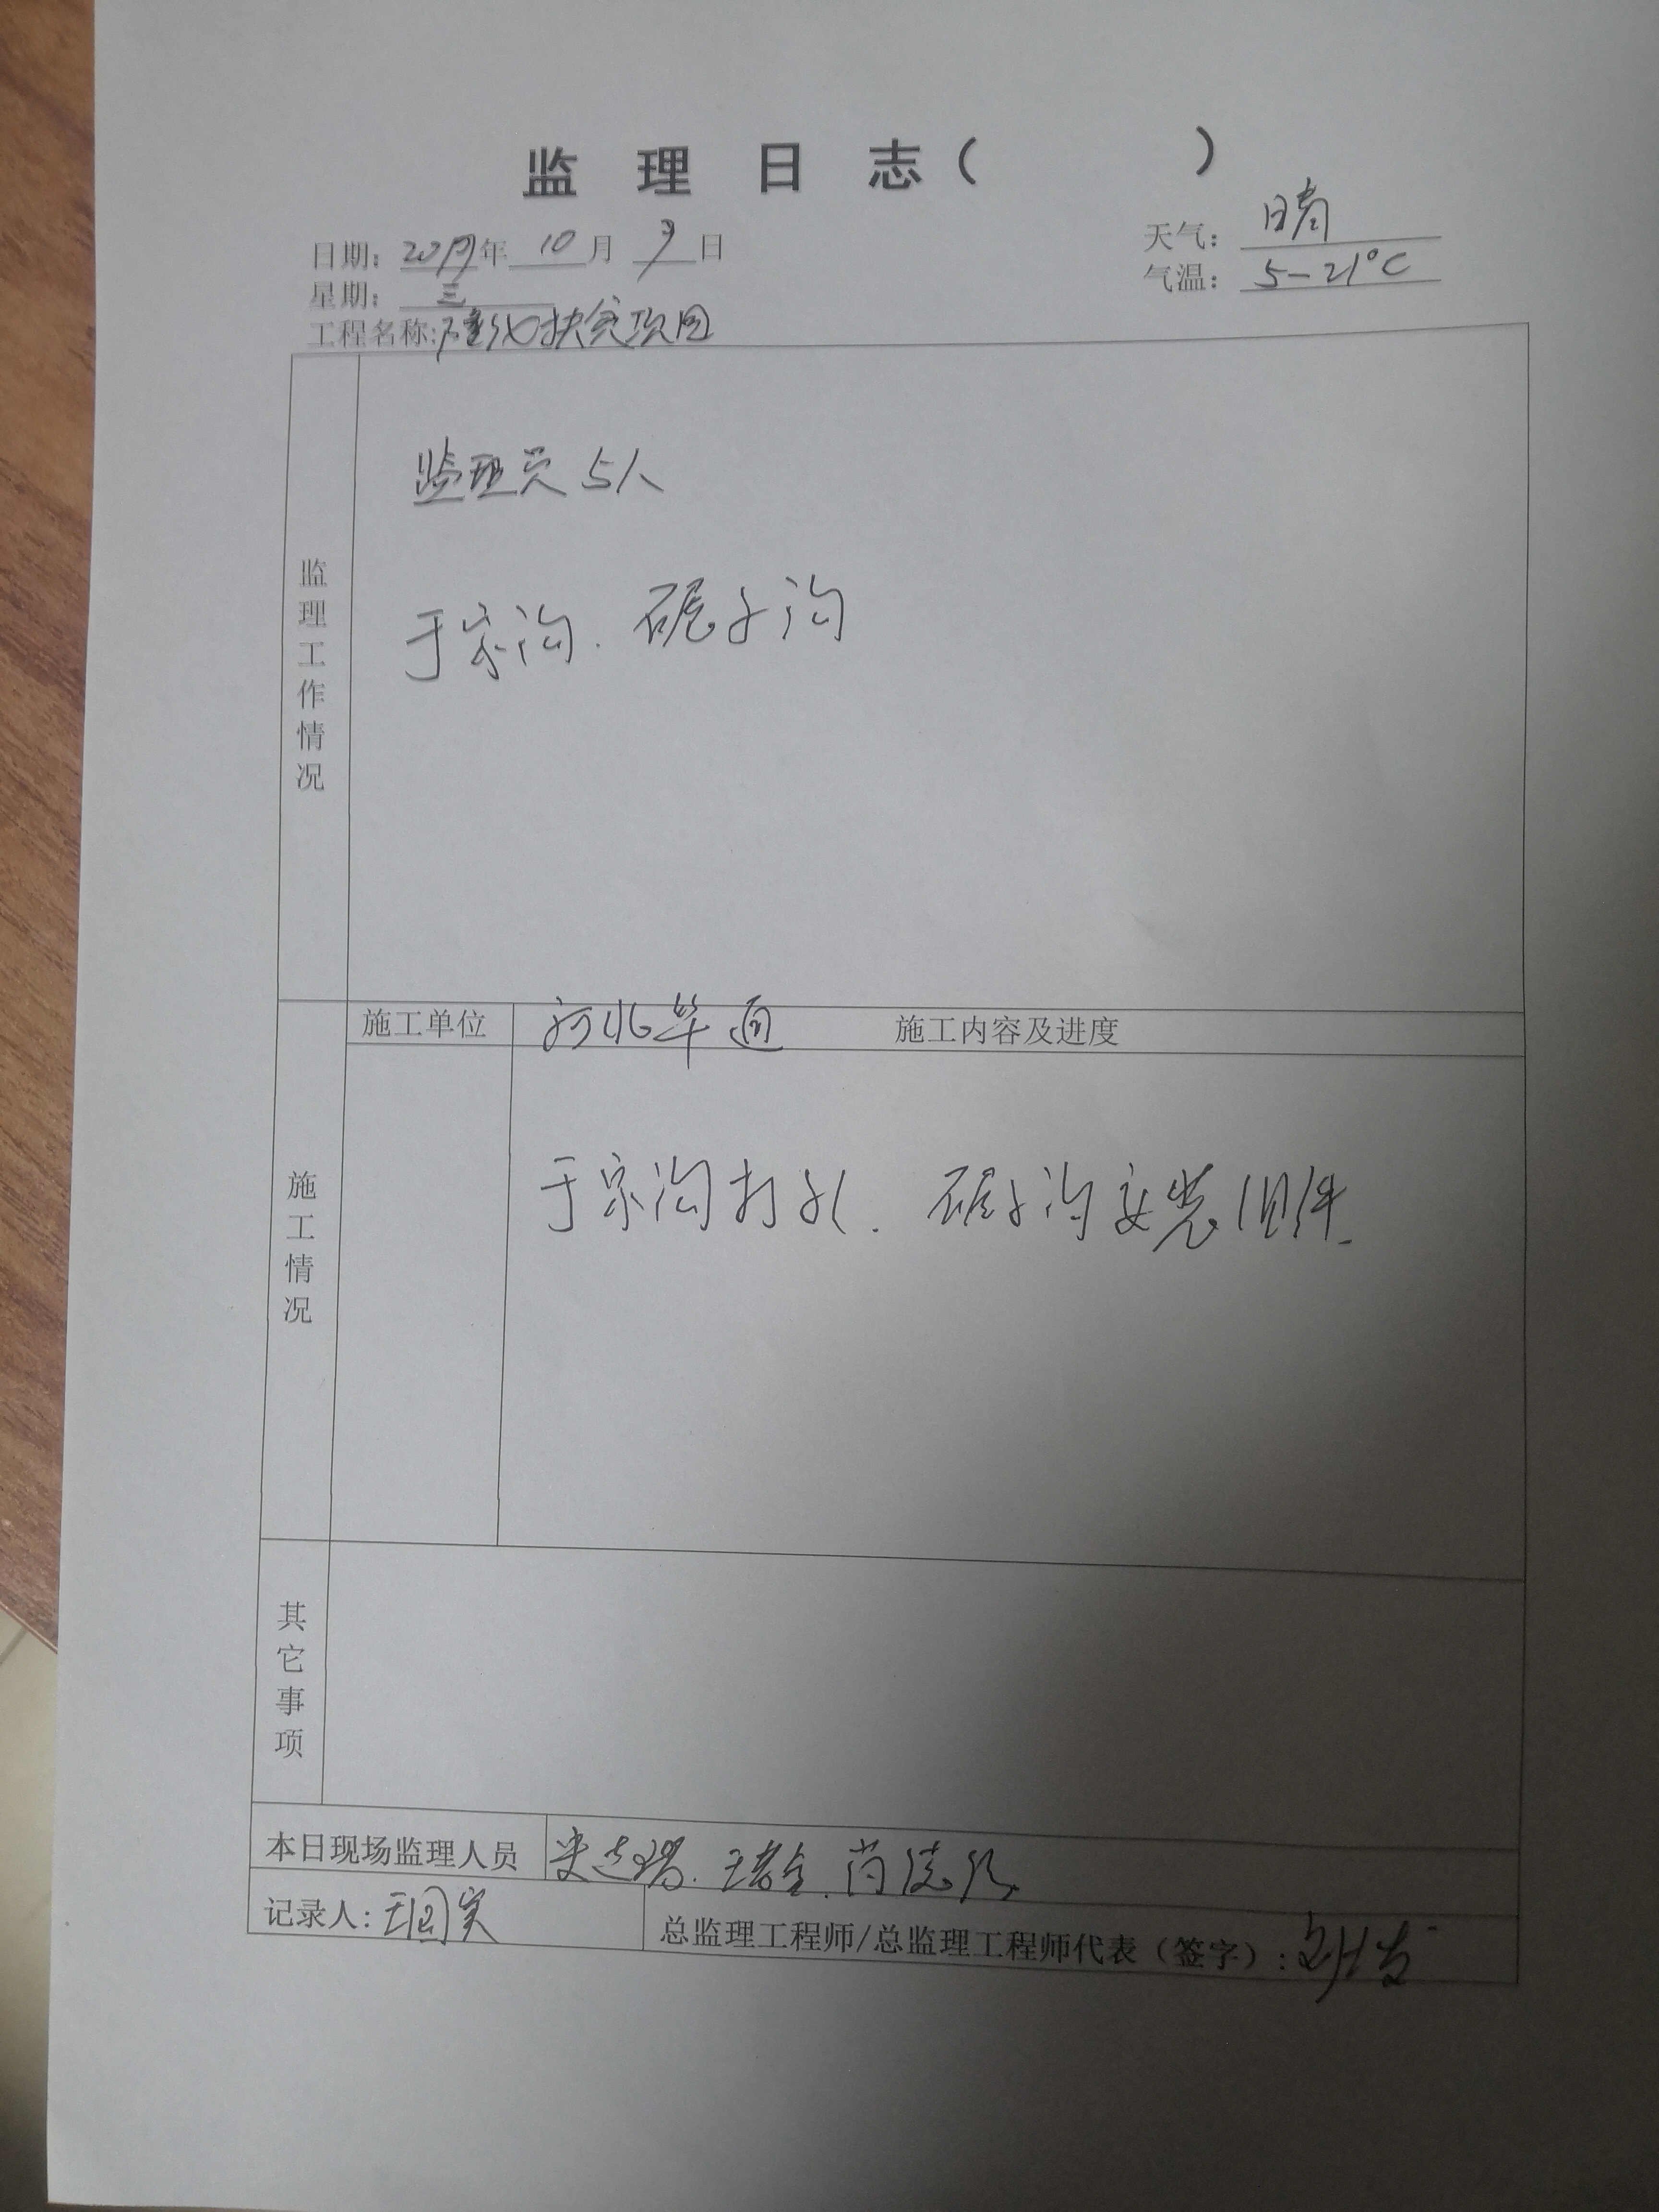 监理日志（ ）
日期：2019年10月9日
天气：晴
星期：三
气温：5-21℃
工程名称：隆化扶贫项目
监理工作情况
监理员5人
于家沟.碾子沟
施工单位
河北华通
施工内容及进度
施工情况
于家沟打孔.碾子沟安装组件.
其它事项
本日现场监理人员
记录人：
总监理工程师/总监理工程师代表（签字）：